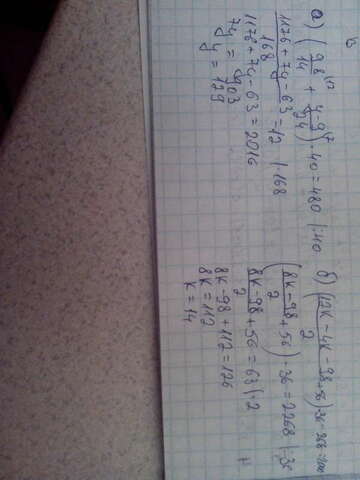 а) (98/14 + (y-9)/24) · 40 = 480 | :40
(1176 + 7y - 63)/168 = 12 | · 168
1176 + 7y - 63 = 2016
7y = 903
y = 129
б) ((12k - 4k - 98)/2 + 56) · 36 - 268 =
((8k - 98)/2 + 56) · 36 = 2268 | : 36
(8k - 98)/2 + 56 = 63 | · 2
8k - 98 + 112 = 126
8k = 112
k = 14